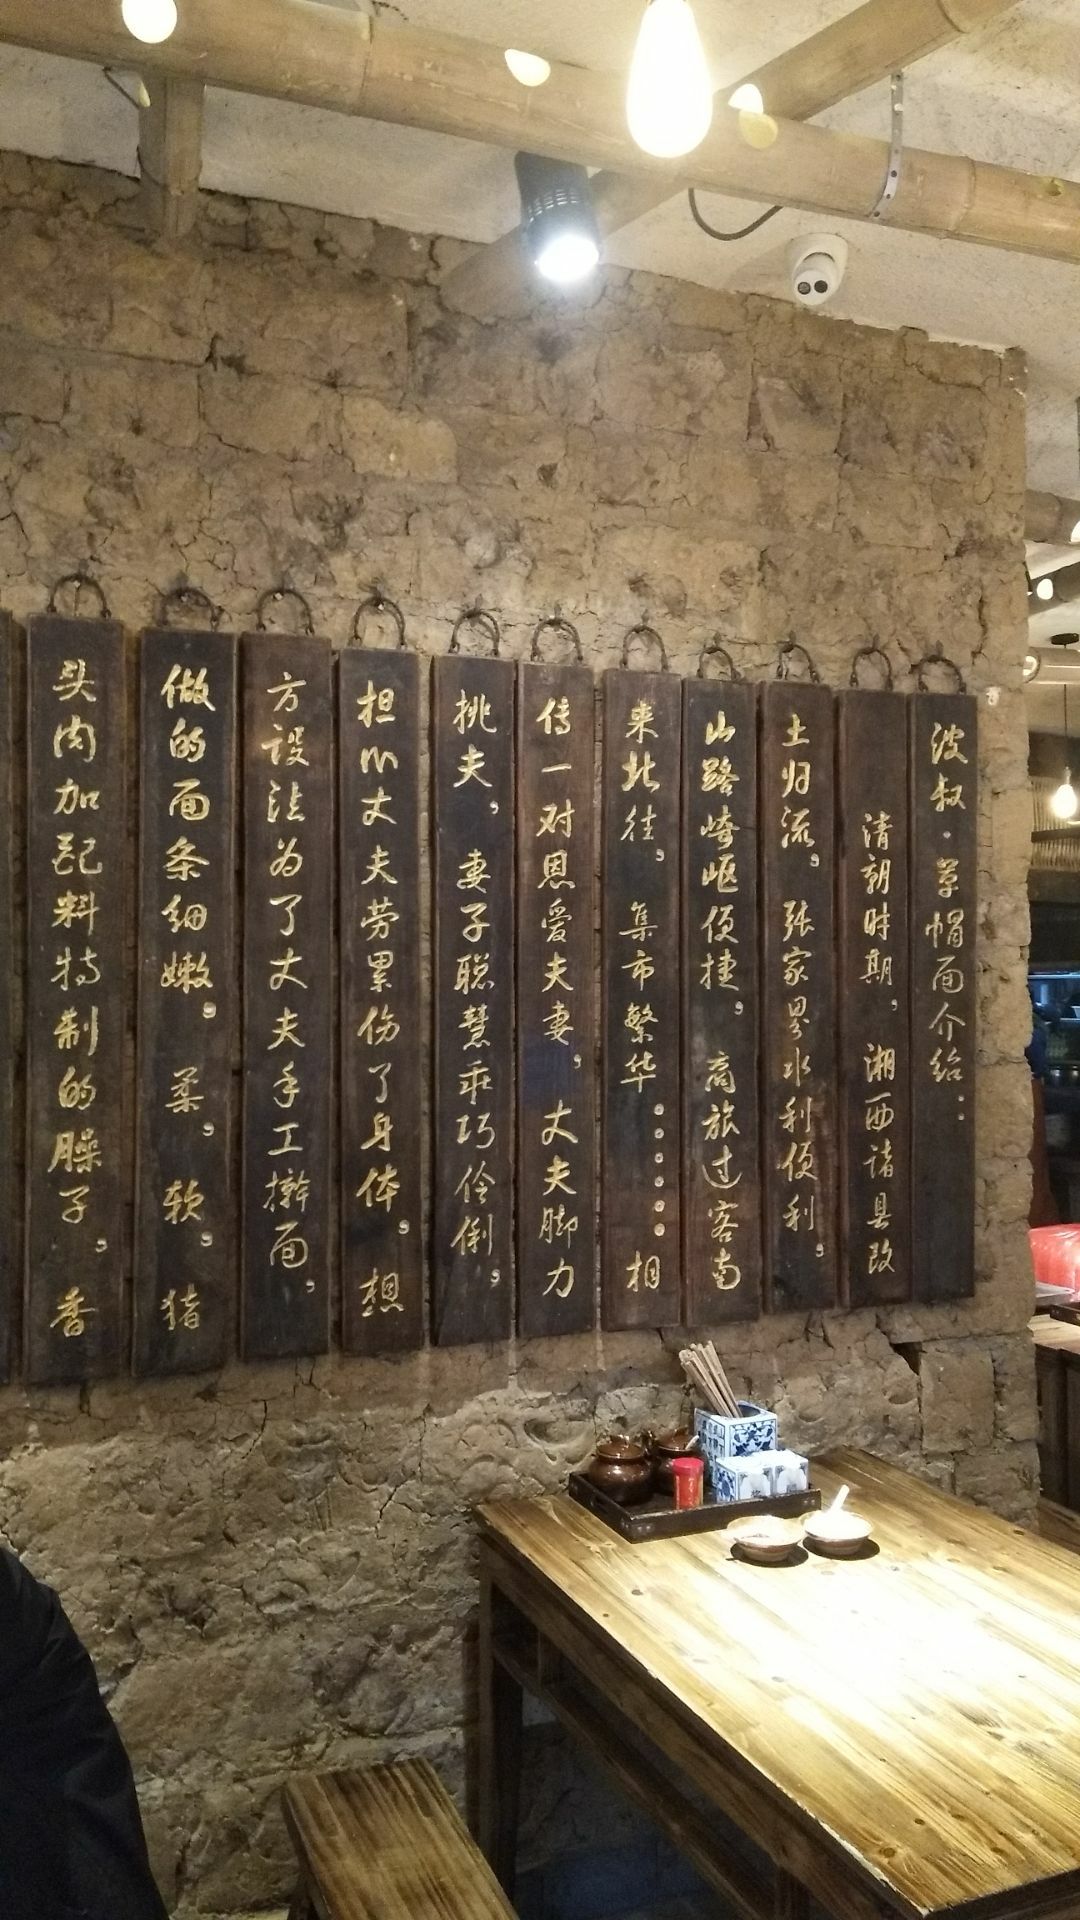 波叔·草帽面介绍：
清朝时期，湘西诸县改
土归流，张家界水利便利，
山路崎岖便捷，商旅过客南
来北往，集市繁华……相
传一对恩爱夫妻，丈夫脚力
挑夫，妻子聪慧乖巧伶俐，
担心丈夫劳累伤了身体，想
方设法为了丈夫手工擀面，
做的面条细嫩。柔，软，猪
头肉加配料特制的臊子，香